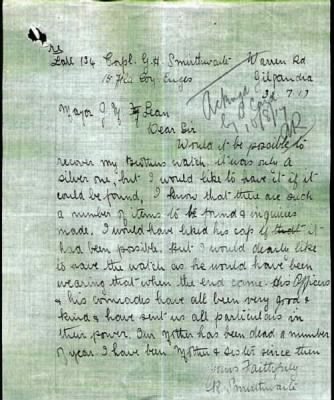 rs
Late 134 Corpl. G. H. Smurthwaite Warren Rd
15 Fld Coy. Enges Gilgandra
7.17
Major J. M. Lean
Dear Sir
Ackngd
10/8/17
Would it be possible to
recover my Brothers watch it was only a
silver one, but I would like to have it if it
could be found, I know that there are such
a number of items to be found & inquiries
made. I would have liked his cap if that it
had been possible. But I would dearly like
to have the watch as he would have been
wearing that when the end came. His Officers
& his comrades have all been very good &
kind & have sent us all particulars in
their power. Our Mother has been dead a number
of year I have been Mother & sister since then
Yours Faithfully
R. Smurthwaite